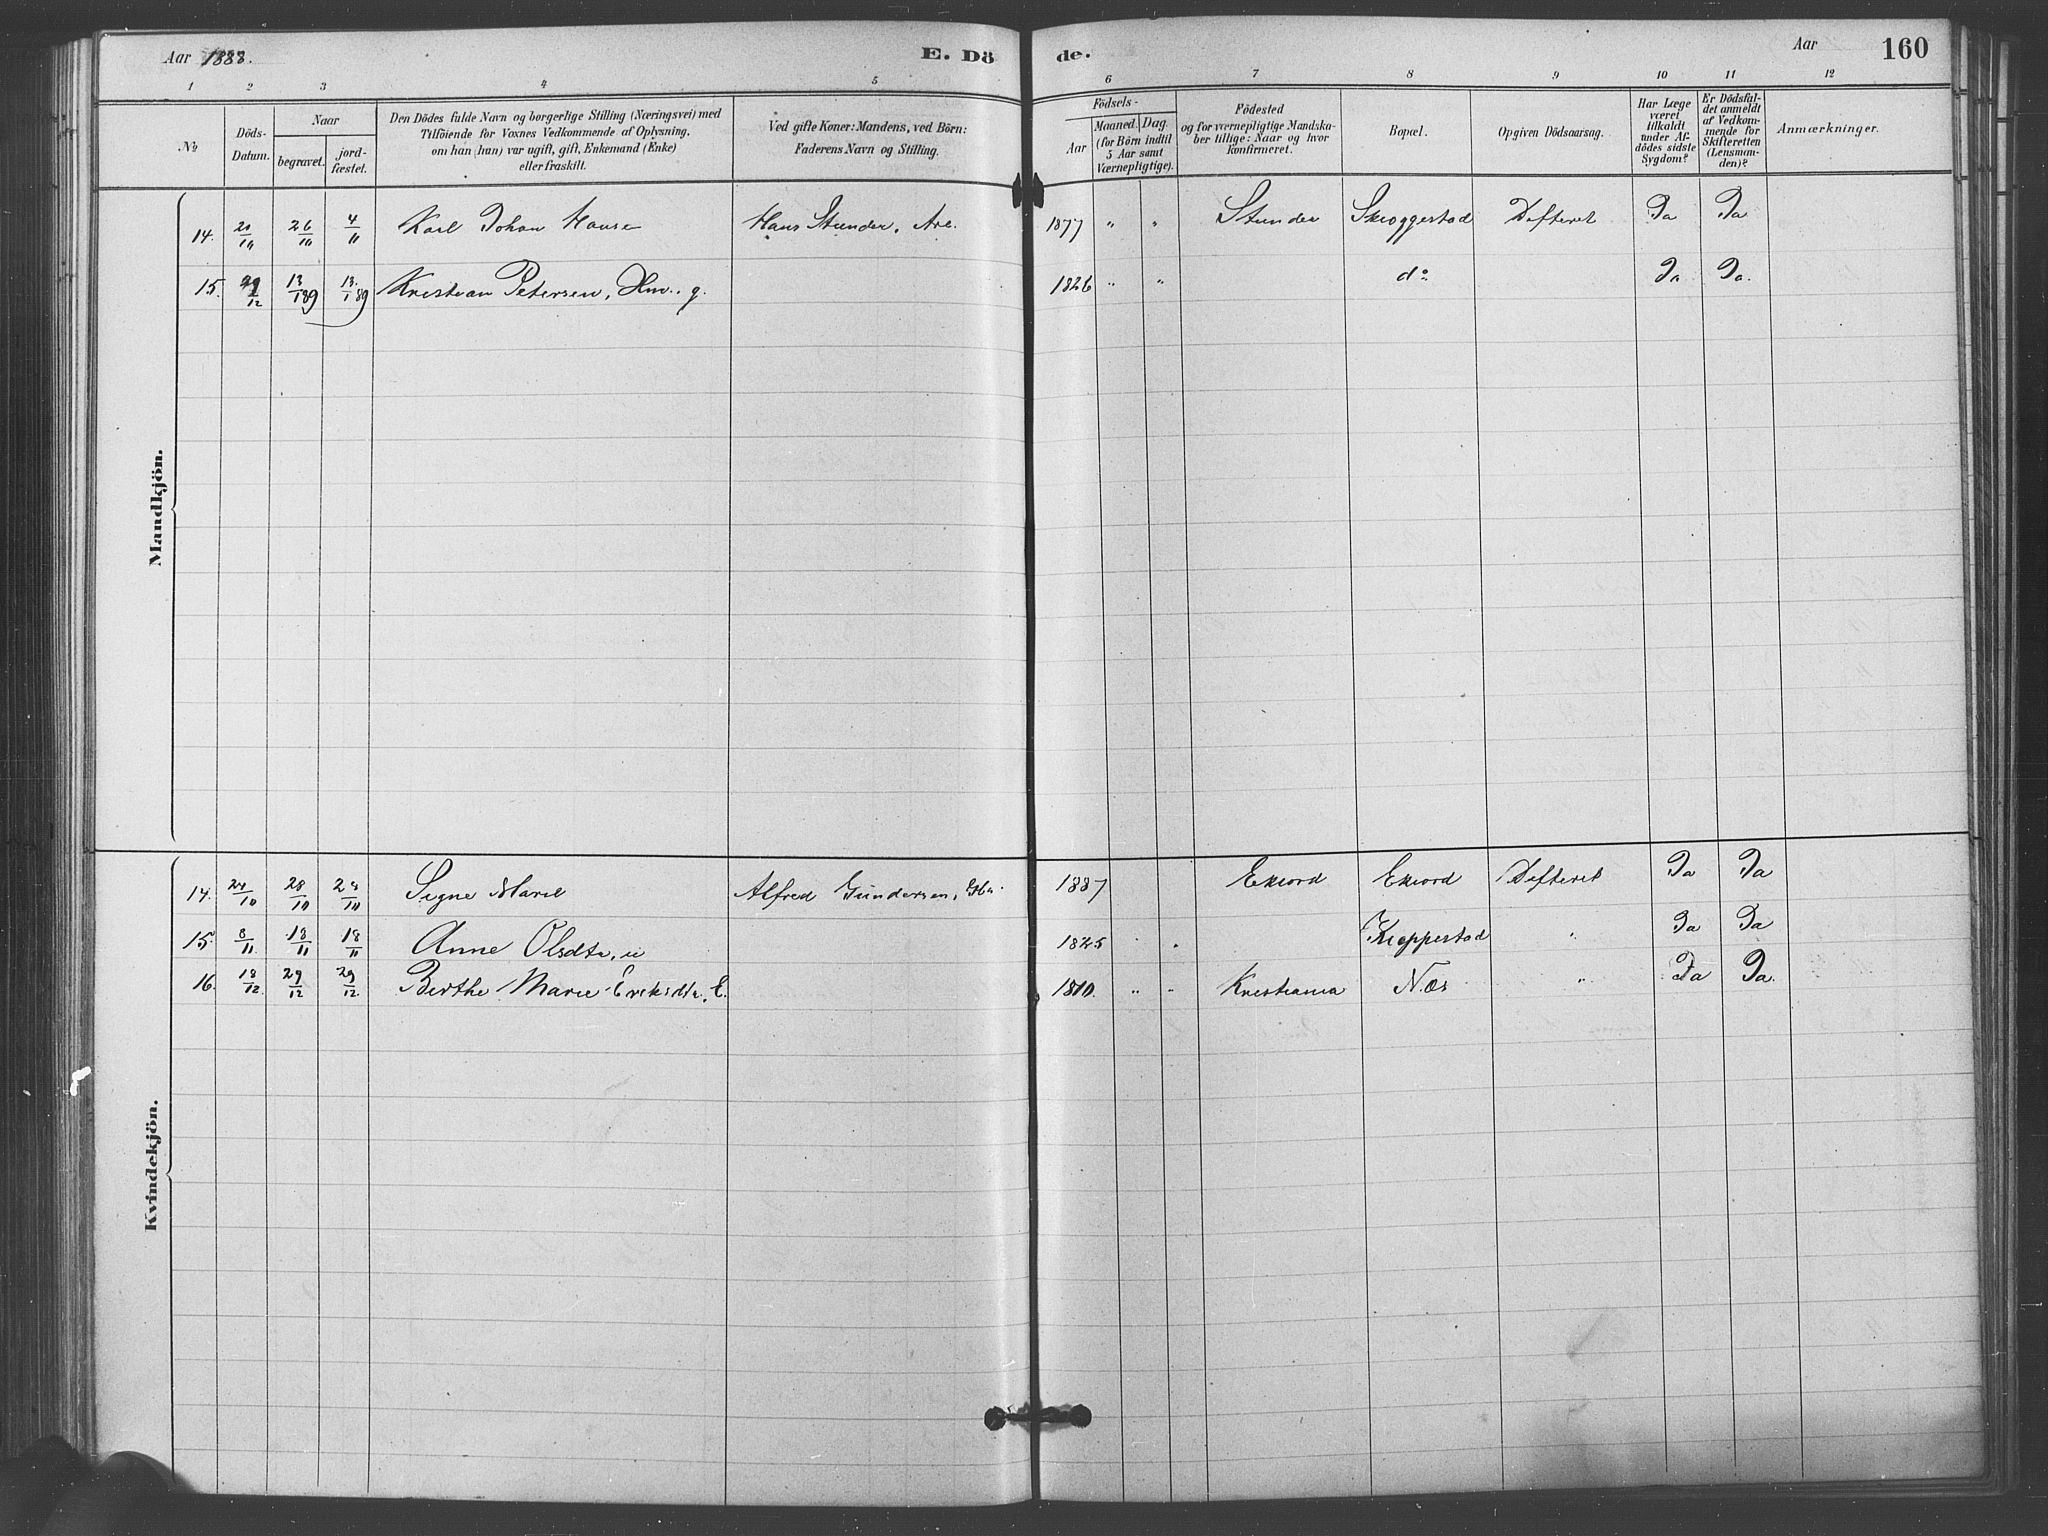 Aar 1888. E. Dö de. Aar 160
1 2 3 4 5 6 7 8 9 10 11 12
No
Döds-Datum.
Naar
begravet.
jordfæstet.
Den Dödes fulde Navn og borgerlige Stilling (Næringsvei) med
Tilföiende for Voxnes Vedkommende af Oplysning,
om han (hun) var ugift, gift, Enkemand (Enke)
eller fraskilt.
Ved gifte Koner: Mandens, ved Börn:
Faderens Navn og Stilling.
Födsels-
Aar
Maaned. Dag.
(for Börn indtil
5 Aar samt
Værnepligtige).
Födested
og for værnepligtige Mandska-
ber tillige: Naar og hvor
konfirmeret.
Bopæl.
Opgiven Dödsaarsag.
Har Læge
været
tilkaldt
under Af-
dödes sidste
Sygdom?
Er Dödsfal-
det anmeldt
af Vedkom-
mende for
Skifteretten
(Lensman-
den)?
Anmærkninger.
Mandkjön.
14. 20/10 26/10 4/11 Karl Johan Hansen Hans Stunder, Arb. 1877 " " Stunder Skroggestad Difterit Ja Ja
15. /12 13/1 89 13/1 89 Kristian Petersen, Hm. g. 1826 " " do Ja Ja.
Kvindekjön.
14. 24/10 28/10 29/10 Signe Marie Alfred Gundersen, 1887 Ekeord Ekeord Difterit Ja Ja
15. 8/11 18/11 18/11 Anne Olsdtr, u 1825 " " Kroppestad " Ja Ja
16. 18/12 29/12 29/12 Berthe Marie Eriksdtr, E. 1810. " " Kristiania Næs " Ja Ja.